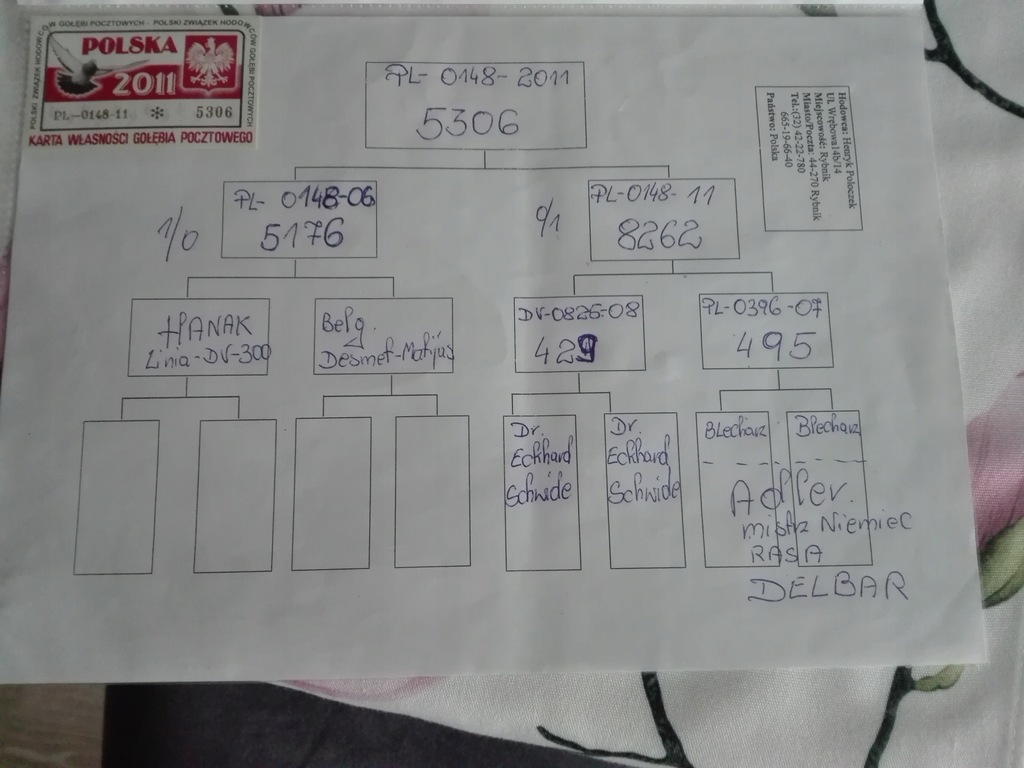 POLSKI ZWIĄZEK HODOWCÓW GOŁĘBI POCZTOWYCH - POLSKI ZWIĄZEK HODOWCÓW GOŁĘBI POCZTOWYCH
POLSKA
2011
PL-0148-11 * 5306
KARTA WŁASNOŚCI GOŁĘBIA POCZTOWEGO
PL-0148-2011
5306
Hodowca: Henryk Poloczek
Ul. Wrębowa14b/14
Miejscowość: Rybnik
Miasto/Poczta: 44-270 Rybnik
Tel.:(32) 42-22-780
665-19-66-40
Państwo: Polska
1/0
PL-0148-06
5176
0/1
PL-0148-11
8262
HANAK
Linia-DV-300
Belg.
Desmet-Matijus
DV-0826-08
429
PL-0396-07
495
Dr.
Eckhard
Schwide
Dr.
Eckhard
Schwide
Blecharz
Blecharz
Adler.
mistrz Niemiec
RASA
DELBAR